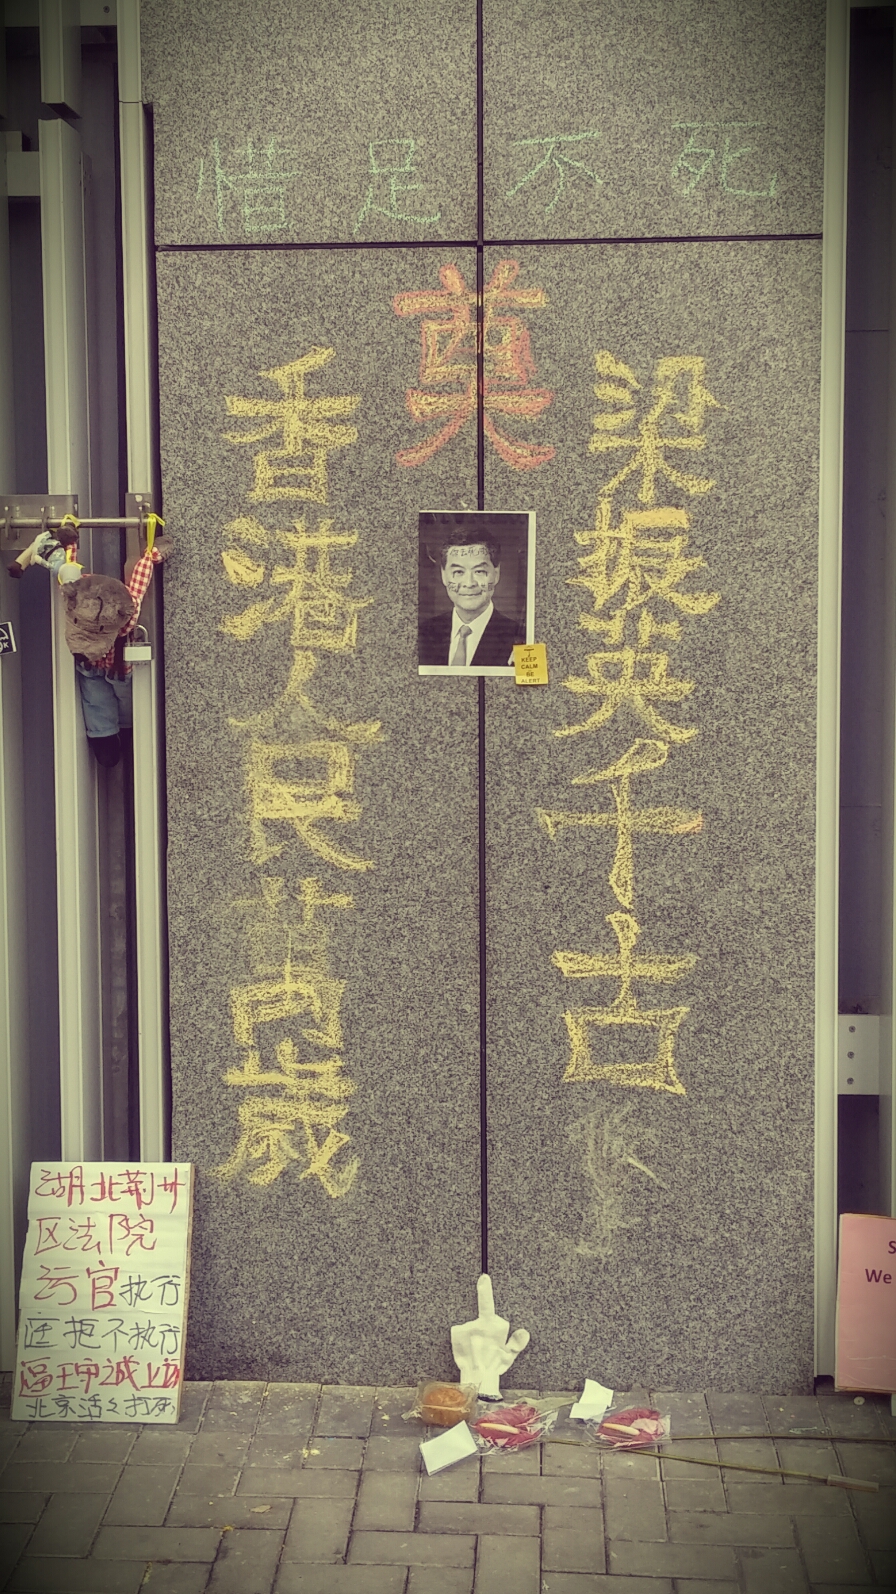 惜足不死
奠
梁振英千古
香港人民万歲
KEEP
CALM
BE
ALERT
湖北荆州
区法院
污官执行
廷拒不执行
逼王守诚上访
北京活々打死
S
We